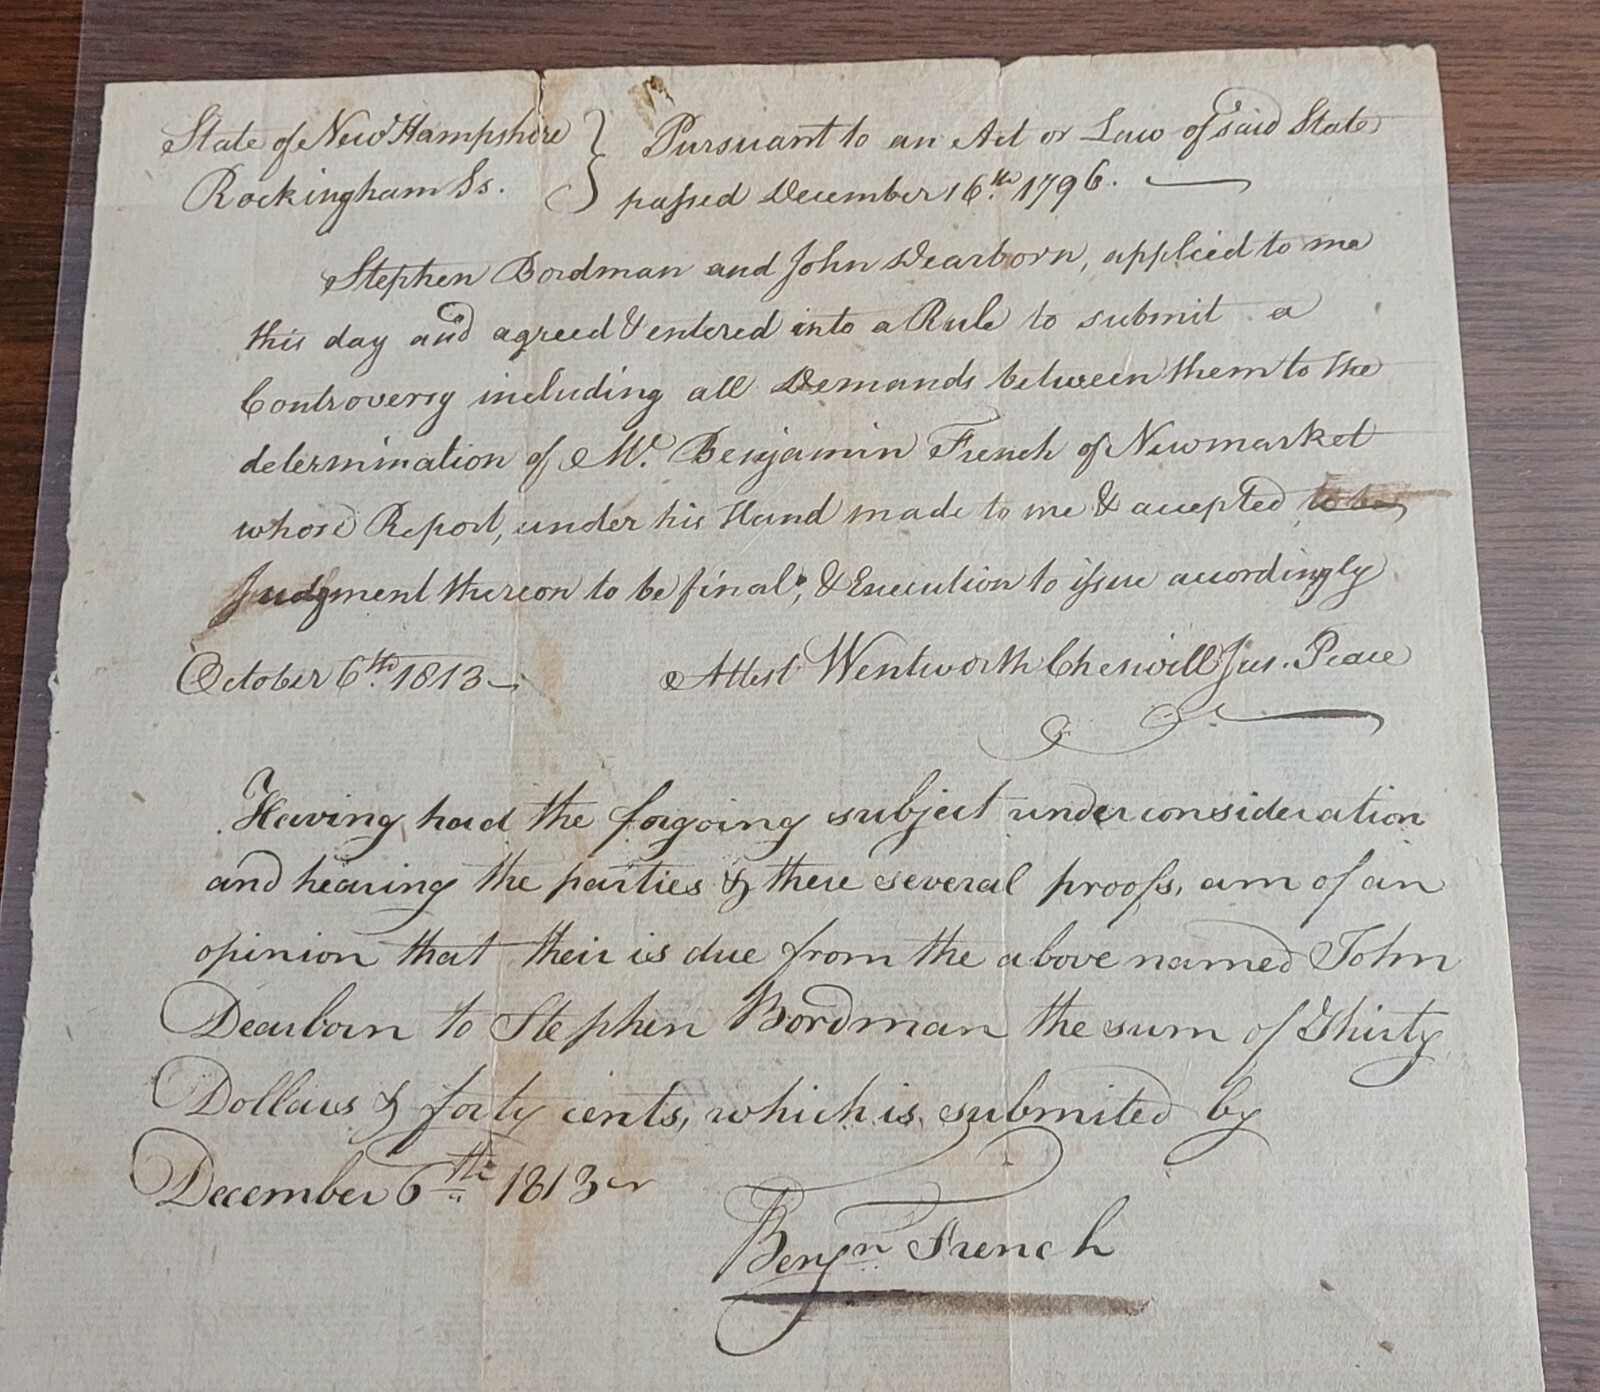 State of New Hampshire } Pursuant to an Act or Law of said State
Rockingham Ss. } passed December 16th 1796.
Stephen Bordman and John Dearborn, applied to me
this day and agreed & entered into a Rule to submit a
Controversy including all Demands between them to the
determination of Mr. Benjamin French of Newmarket
whose Report, under his Hand made to me & accepted to be
Judgment thereon to be final, & Execution to issue accordingly
October 6th. 1813 Attest Wentworth Cheswill Jus. Peace
Having had the forgoing subject under consideration
and hearing the parties & there several proofs, am of an
opinion that their is due from the above named John
Dearborn to Stephen Bordman the sum of Thirty
Dollars & forty cents, which is submited by
December 6th 1813
Benjn French